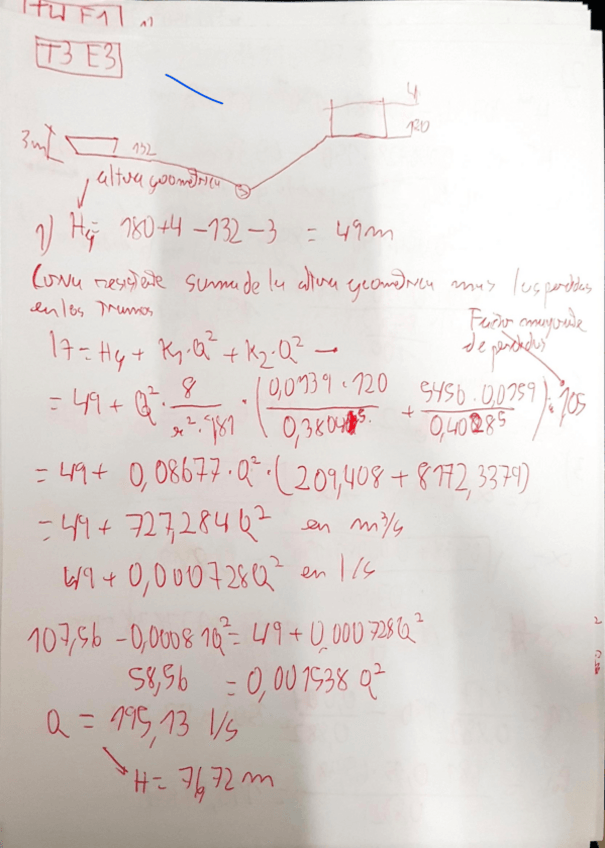 T4 F1
T3 E3
4
180
3m
132
altura geometrica
1) Hg = 180+4-132-3 = 49m
Curva resistente suma de la altura geometrica mas las perdidas
en los tramos
Factor mayorante
de perdidas
17 = Hg + K1·Q² + K2·Q²
= 49 + Q² · 8/π²·9,81 · (0,0139·120/0,3804⁵ + 5456·0,0159/0,4028⁵)·1,05
= 49 + 0,08677·Q²·(209,408 + 8172,3379)
= 49 + 727,284Q² en m³/s
49 + 0,000728Q² en l/s
107,56 - 0,00081Q² = 49 + 0,000728Q²
58,56 = 0,001538 Q²
Q = 195,13 l/s
H = 76,72 m